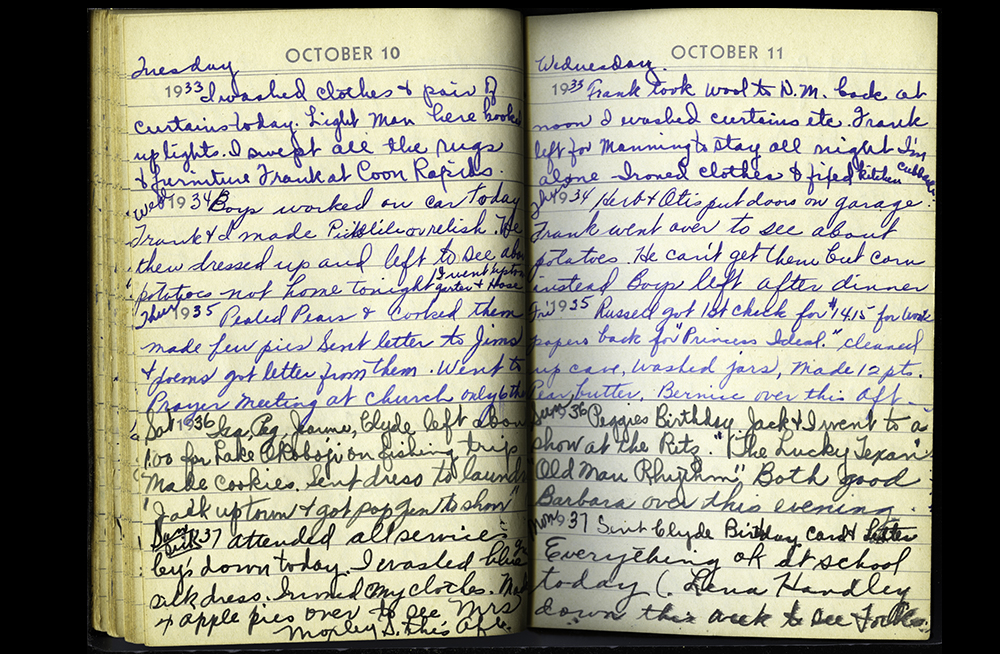 OCTOBER 10
Tuesday
1933 I washed clothes & pair of
curtains today. Light Man here hooked
up lights. I swept all the rugs
& furniture Frank at Coon Rapids.
Wed 1934 Boys worked on car today
Frank & I made Pickilili or relish. He
then dressed up and left to see about
potatoes not home tonight I went uptown
garter & Hose
Thur 1935 Pealed Pears & cooked them
made few pies Sent letter to Jims
& poems got letter from them. Went to
Prayer meeting at church only 6 there
Sat 1936 Geo, Peg, Jeanne, Clyde left about
1:00 for Lake Okoboji on fishing trip
Made cookies. Sent dress to laundry
Jack uptown & got pop gen to show
Sun 37 attended all services
down today. I washed blue
silk dress. Ironed my clothes. Made
4 apple pies over to see Mrs
Morley S. this aft.
OCTOBER 11
Wednesday.
1933 Frank took wool to D.M. back at
noon I washed curtains etc. Frank
left for Manning to stay all night I'm
alone Ironed clothes & fixed kitchen cubbard
1934 Herb & Otis put doors on garage.
Frank went over to see about
potatoes. He can't get them but corn
instead Boys left after dinner
Fri 1935 Russed got 1st check for $14.15 for work
papers back for "Princess Ideal." cleaned
up cave, washed jars, made 12 pts.
Pear butter. Bernice over this aft.
Sun 36 Peggies Birthday Jack & I went to a
show at the Rits. "The Lucky Texan"
"Old Man Rhythm" Both good
Barbara over this evening.
Mon 37 Sent Clyde Birthday card & letter
Everything ok at school
today (. Lena Handley
down this week to see Folks.